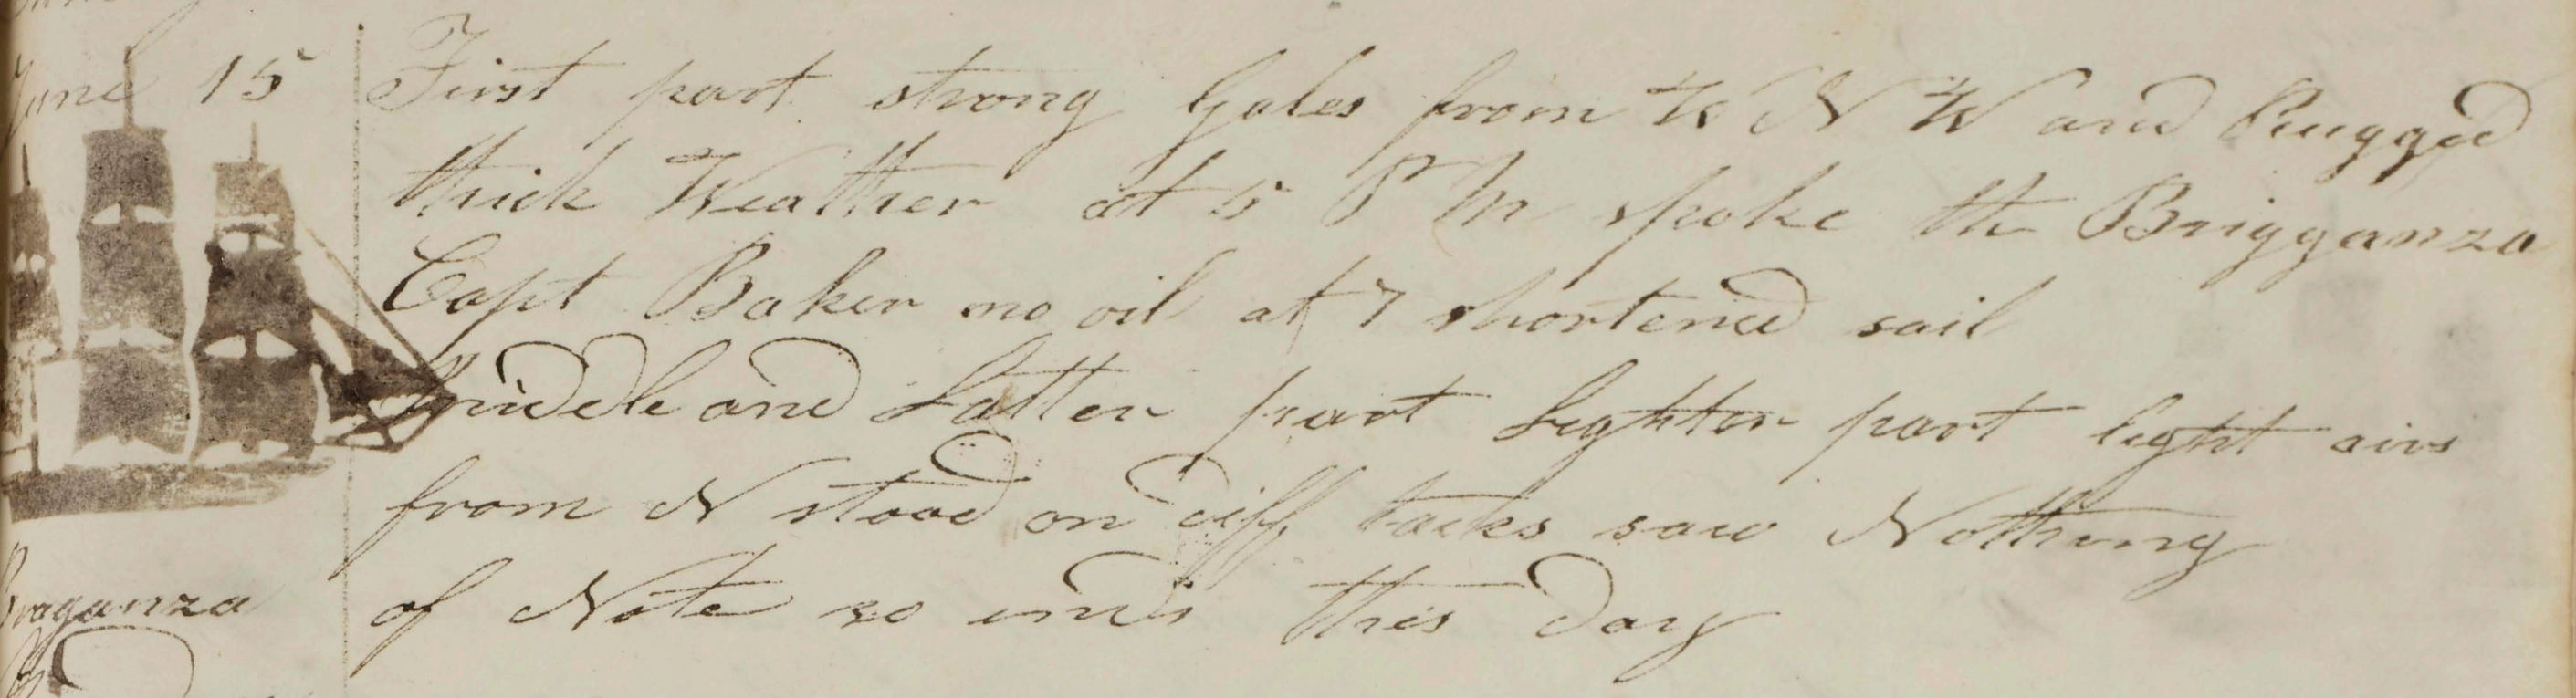 June 15 First part strong Gales from W N W and Rugged
thick Weather at 5 P M spoke the Brigganza
Capt Baker no oil at 7 shortened sail
Middle and Latter part Lighter part light airs
from N stood on diff tacks saw Nothing
of Note so ends this Day
Braganza